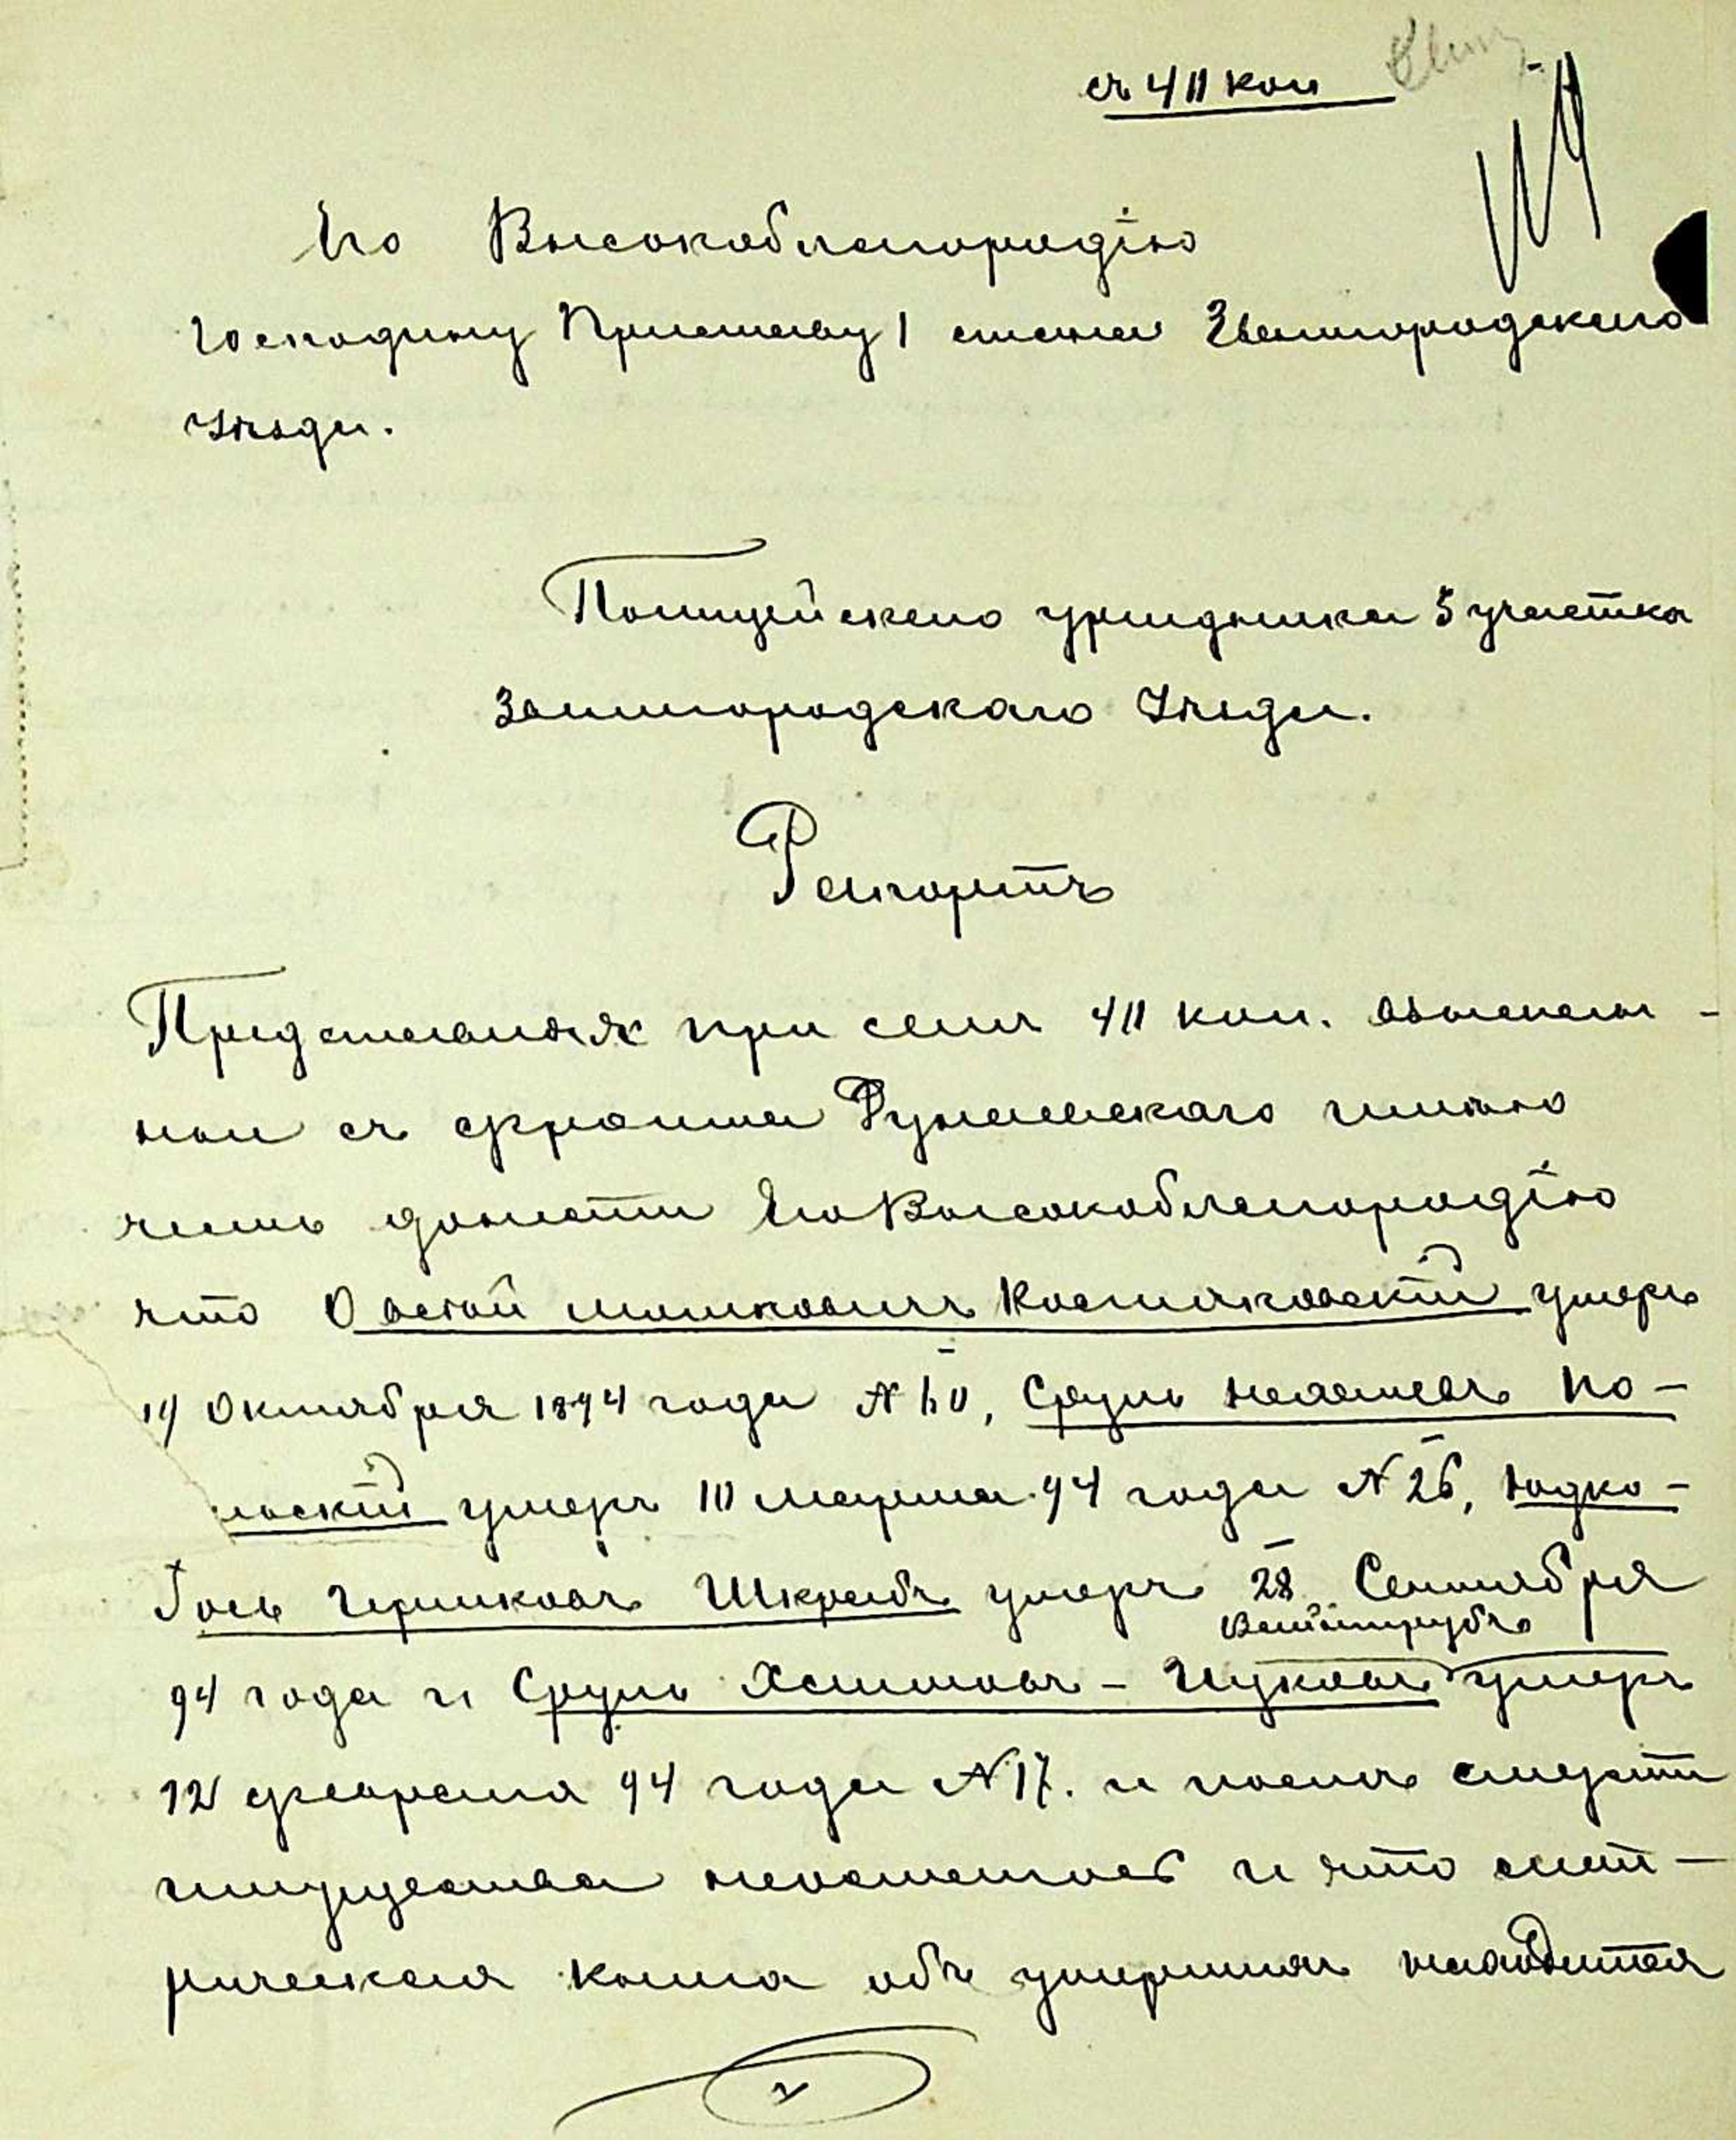 съ 40 коп
Его Высокоблагородію
Господину Приставу 1 стана Звенигородскаго
Уѣзда.
Полицейскаго урядника 5 участка
Звенигородскаго Уѣзда.
Рапортъ
Представляя при семъ 40 коп. взыскан-
ныи съ Франта имѣю
честь донести Его Высокоблагородію
что Овсей Мошковичъ Косяковскій умеръ
14 Октября 1894 года № 60, Сруль По-
скій умеръ 10 Марта 94 года № 26, Юдко-
Іось Гершковъ Шкрабъ умеръ 28 Сентября
Вайнтрубъ
94 года и Сруль Хаимовъ - Ицковъ умеръ
12 февраля 94 года № 17. и послѣ смерти
имущества неосталось и что мет-
рическая книга объ умершихъ находится